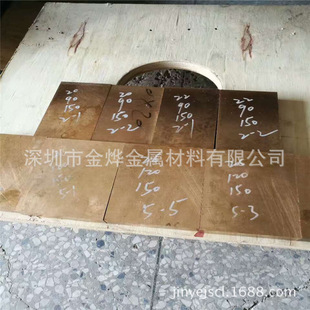 20
90
150
2-1
20
90
150
2-2
22
90
150
2-1
22
90
150
2-2
深圳市金烨金属材料有限公司
5-1
120
150
5-5
120
150
5-3
jinyejscl.1688.com